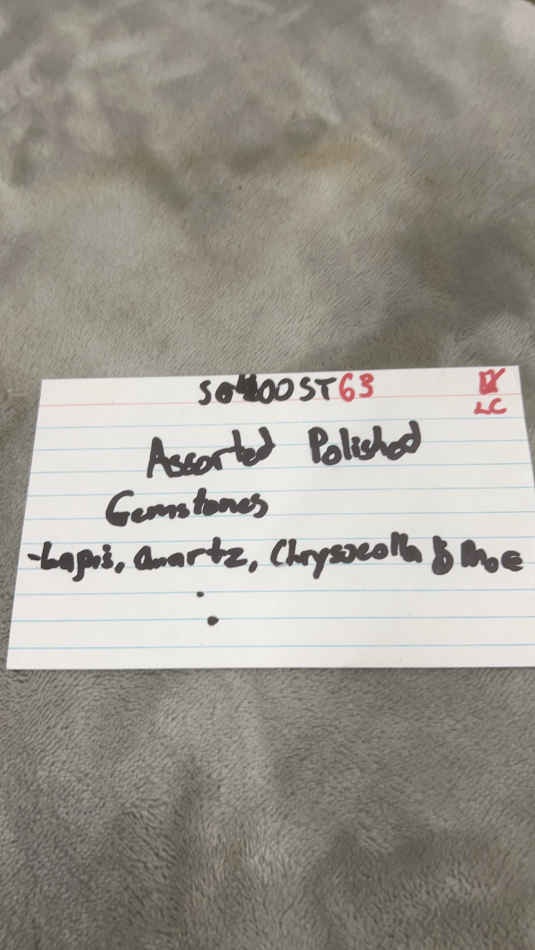 SG400ST63
LC
Assorted Polished
Gemstones
-Lapis, Quartz, Chrysocolla & MoE